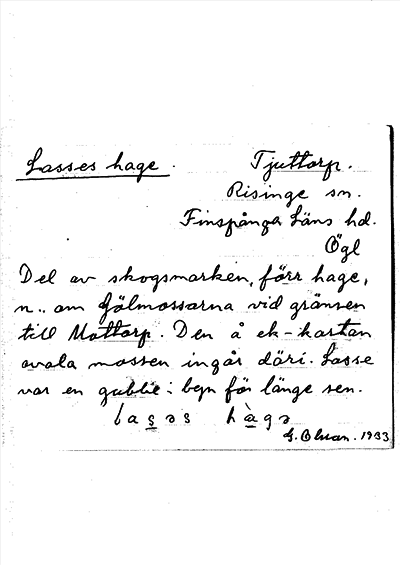 Lasses hage. Tjuttorp.
Risinge sn.
Finspånga Läns hd.
Ögl
Del av skogsmarken, förr hage,
n.. om Gölmossarna vid gränsen
till Mottorp. Den å ek-kartan
ovala mossen ingår däri. Lasse
var en gubbe i byn för länge sen.
lasəs hàgə
G. Olsson. 1933